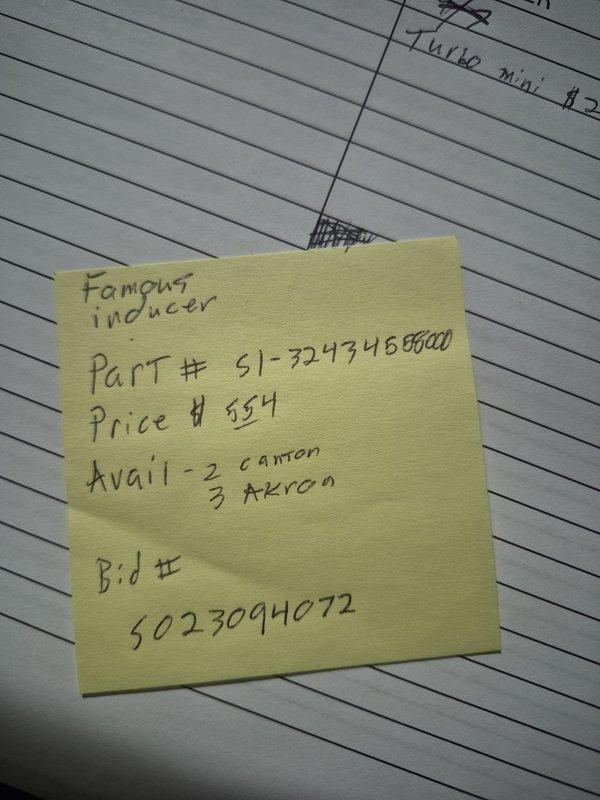 Turbo mini $2
Famous
inducer
Part # S1-32434555000
Price $ 554
Avail - 2 canton
3 Akron
Bid #
5023094072